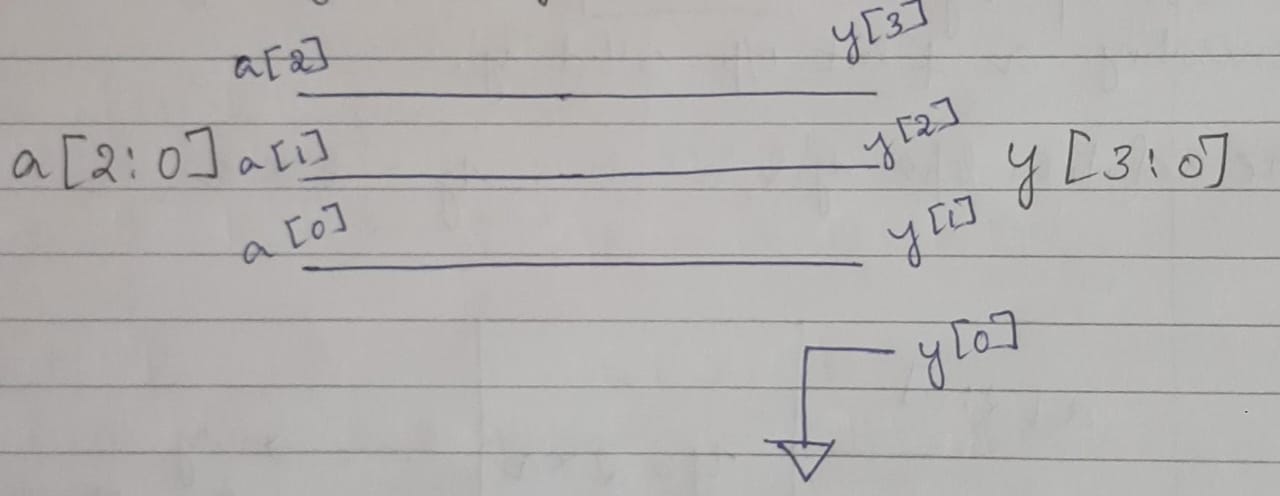 a[2] y[3]
a[2:0] a[1] y[2] y[3:0]
a[0] y[1]
y[0]